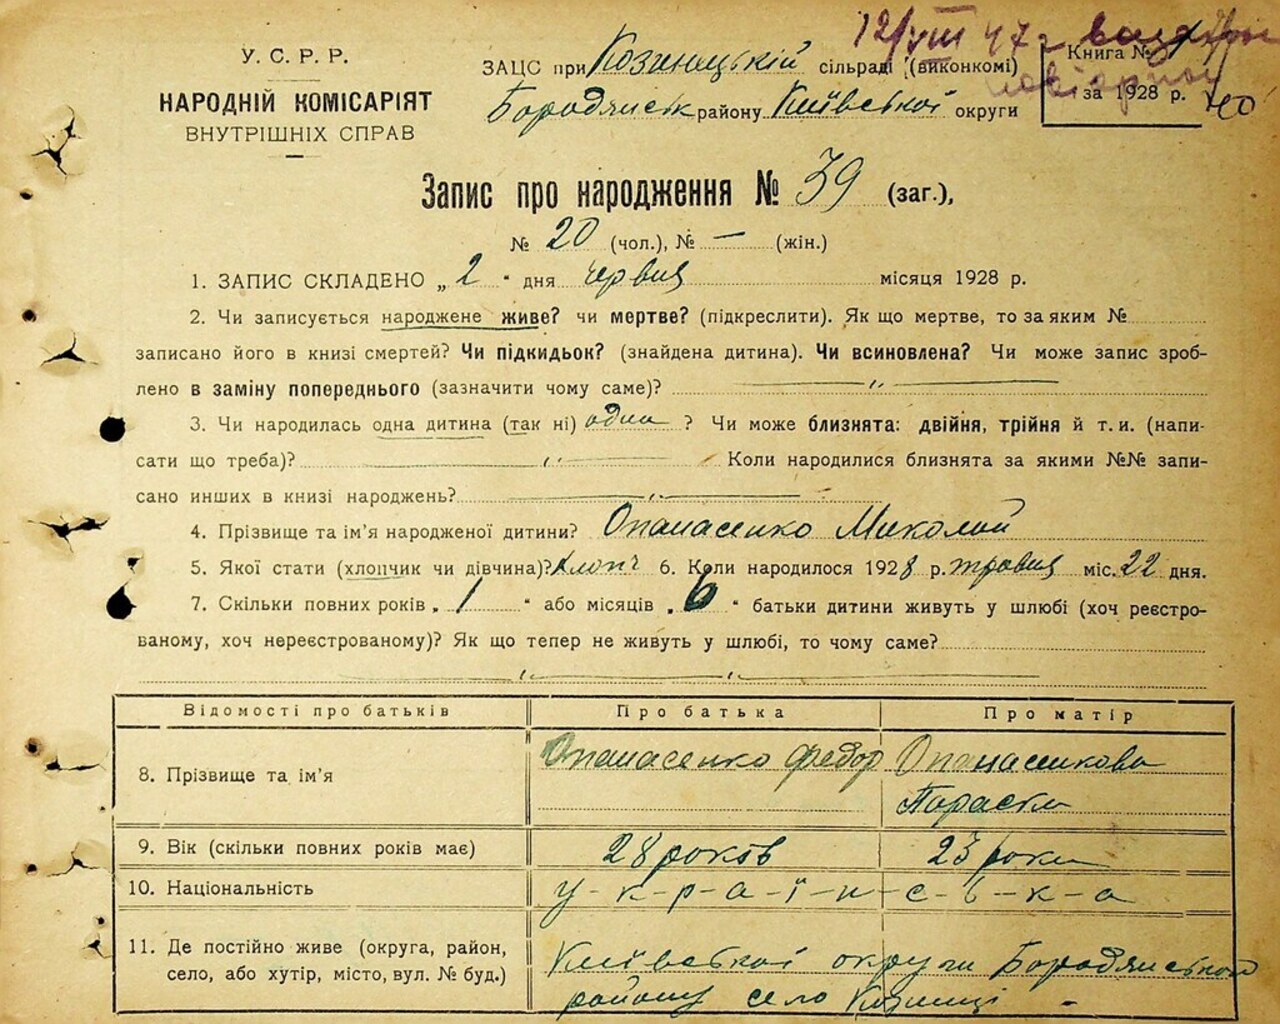 12/VIII 47 г
У. С. Р. Р.
НАРОДНІЙ КОМІСАРІЯТ
ВНУТРІШНІХ СПРАВ
ЗАЦС при сільраді (виконкомі)
Бородянськ району Київської округи
Книга №
за 1928 р.
40
Запис про народження № 39 (заг.),
№ 20 (чол.), № — (жін.)
1. ЗАПИС СКЛАДЕНО „ 2 “ дня червня місяця 1928 р.
2. Чи записується народжене живе? чи мертве? (підкреслити). Як що мертве, то за яким №
записано його в книзі смертей? Чи підкидьок? (знайдена дитина). Чи всиновлена? Чи може запис зроб-
лено в заміну попереднього (зазначити чому саме)? — „ —
3. Чи народилась одна дитина (так ні) одна ? Чи може близнята: двійня, трійня й т. и. (напи-
сати що треба)? — „ — Коли народилися близнята за якими №№ запи-
сано инших в книзі народжень? — „ —
4. Прізвище та ім'я народженої дитини? Опанасенко Миколай
5. Якої стати (хлопчик чи дівчина)? Хлопч 6. Коли народилося 1928 р. травня міс. 22 дня.
7. Скільки повних років „ 1 “ або місяців „ 6 “ батьки дитини живуть у шлюбі (хоч реєстро-
ваному, хоч нереєстрованому)? Як що тепер не живуть у шлюбі, то чому саме?
— „ — „ —
Відомості про батьків Про батька Про матір
8. Прізвище та ім'я Опанасенко Федор Опанасенкова
Параска
9. Вік (скільки повних років має) 28 років 23 роки
10. Національність у-к-р-а-ї-н-с-ь-к-а
11. Де постійно живе (округа, район,
село, або хутір, місто, вул. № буд.)
Київської округи Бородянського
району село